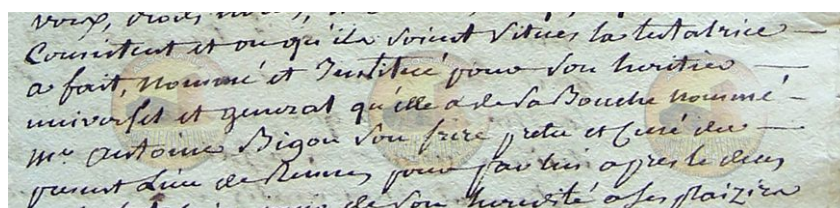 voix, droits noms,
Consistent et ou qu'ils soint situés la testatrice
a fait, nommé et Institué pour son heritier
universel et general qu'elle a de sa Bouche nommé
mr antoine Bigou son frere pretre et Curé du
present Lieu de Rennes pour par lui apres le deces
de son heredité a ses plaizirs